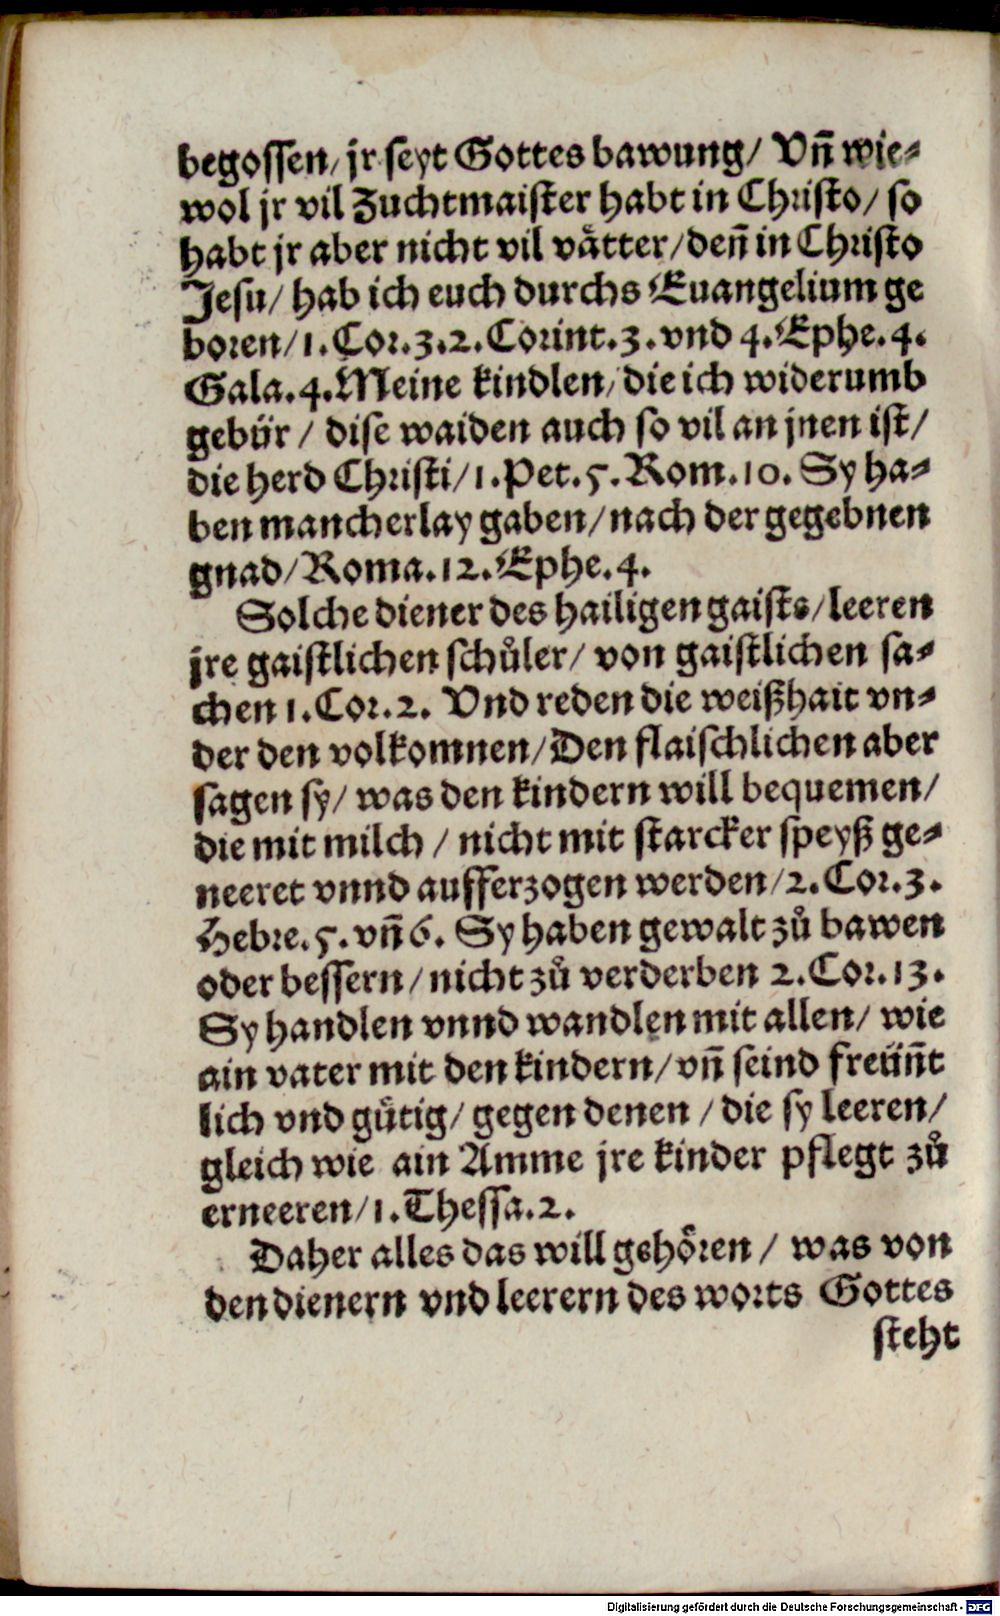 begossen/ jr seyt Gottes bawung/ Vñ wie⸗
wol jr vil Zuchtmaister habt in Christo/ so
habt jr aber nicht vil vaͤtter/ deñ in Christo
Jesu/ hab ich euch durchs Euangelium ge
boren/ 1. Cor. 3. 2. Corint. 3. vnd 4. Ephe. 4.
Gala. 4. Meine kindlen/ die ich widerumb
gebür / dise waiden auch so vil an jnen ist/
die herd Christi/ 1. Pet. 5. Rom. 10. Sy ha⸗
ben mancherlay gaben/ nach der gegebnen
gnad/ Roma. 12. Ephe. 4.
Solche diener des hailigen gaists/ leeren
jre gaistlichen schuͦler/ von gaistlichen sa⸗
chen 1. Cor. 2. Vnd reden die weißhait vn⸗
der den volkomnen/ Den flaischlichen aber
sagen sy/ was den kindern will bequemen/
die mit milch / nicht mit starcker speyß ge⸗
neeret vnnd aufferzogen werden/ 2. Cor. 3.
Hebre. 5. vñ 6. Sy haben gewalt zuͦ bawen
oder bessern/ nicht zuͦ verderben 2. Cor. 13.
Sy handlen vnnd wandlen mit allen/ wie
ain vater mit den kindern/ vñ seind freüñt
lich vnd guͤtig/ gegen denen / die sy leeren/
gleich wie ain Amme jre kinder pflegt zuͦ
erneeren/ 1. Thessa. 2.
Daher alles das will gehoͤren / was von
den dienern vnd leerern des worts Gottes
steht
Digitalisierung gefördert durch die Deutsche Forschungsgemeinschaft - DFG